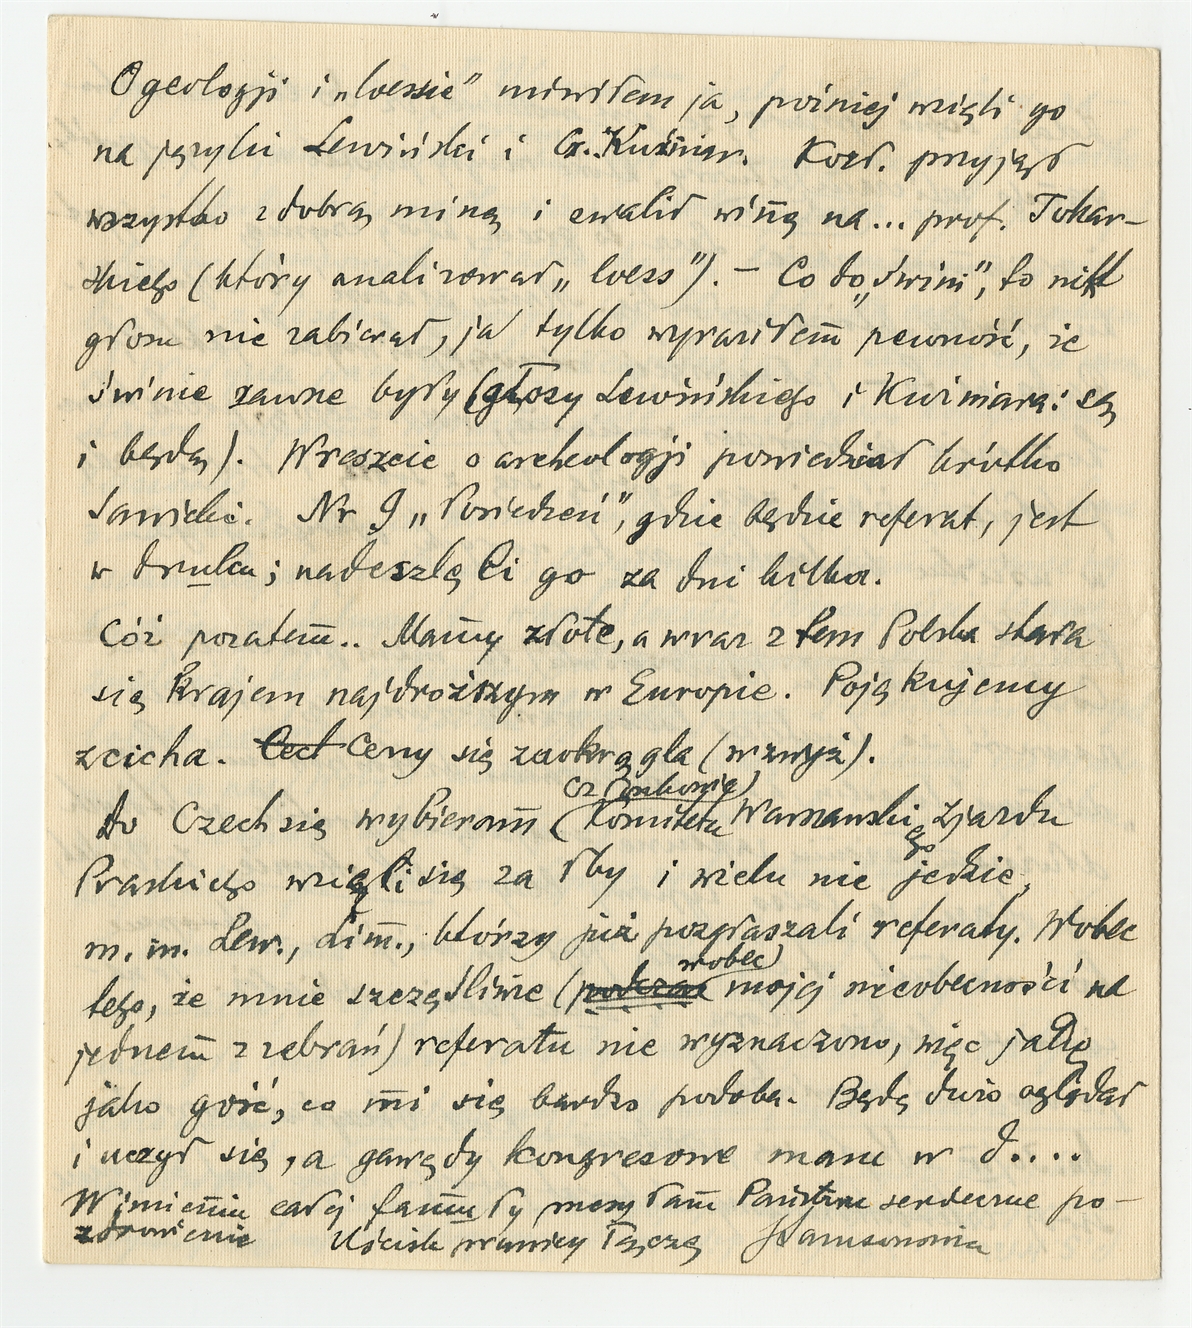 O geologji i „loessie” mówiłem ja, później wzięli go
na języki Lewiński i G. Kuźniar. Kozł. przyjął
wszystko z dobrą miną i zwalił winę na... prof. Tokar-
skiego (który analizował „loess”). – Co do „świni”, to nikt
głosu nie zabierał, ja tylko wyraziłem pewność, że
świnie zawne były (głosy Lewińskiego i Kuźniara: są
i będą). Wreszcie o archeologji powiedział krótko
Sawicki. Nr 9 „Posiedzeń”, gdzie będzie referat, jest
w druku; nadeszlę Ci go za dni kilka.
Cóż pozatem.. Mamy złote, a wraz z tem Polska stała
się krajem najdroższym w Europie. Pojękujemy
zcicha. Cect Ceny się zaokrągla (wzwyż).
Do Czech się wybieram (członkowie) (Komitetu Warszawskiego Zjazdu
Praskiego wzięli się za łby i wielu nie jedzie,
m. in. Lew., Lim., którzy już pozgłaszali referaty. Wobec
tego, że mnie szczęśliwie (podczas wobec) mojej nieobecności na
jednem z zebrań) referatu nie wyznaczono, więc jadę
jako gość, co mi się bardzo podoba. Będę dużo oglądał
i uczył się, a gawędy kongresowe mam w d....
W imieniu całej familji przesyłam Państwu serdeczne po-
zdrowienie Uścisk prawicy łączę